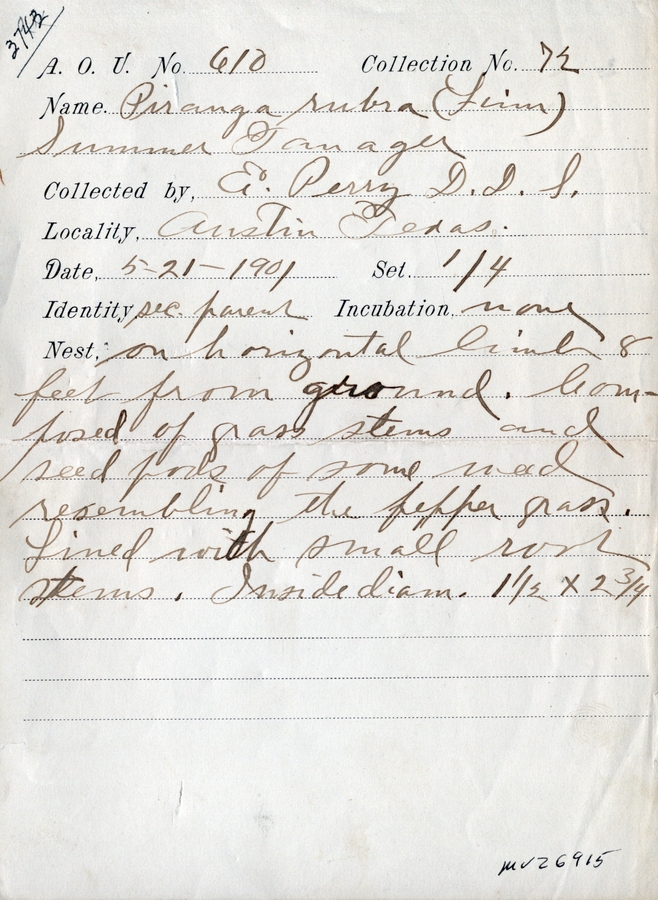 3743
A. O. U. No. 610 Collection No. 7½
Name. Piranga rubra (Linn)
Summer Tanager
Collected by, E. Perry D. D. S.
Locality, Austin Texas.
Date, 5-21-1901 Set. 1/4
Identity sec. parent Incubation. none
Nest, on horizontal limb 8
feet from ground. Com-
posed of grass stems and
seed pods of some weed
resembling the pepper grass.
Lined with small root
stems. Inside diam. 1½ x 2 3/4
MVZ6915